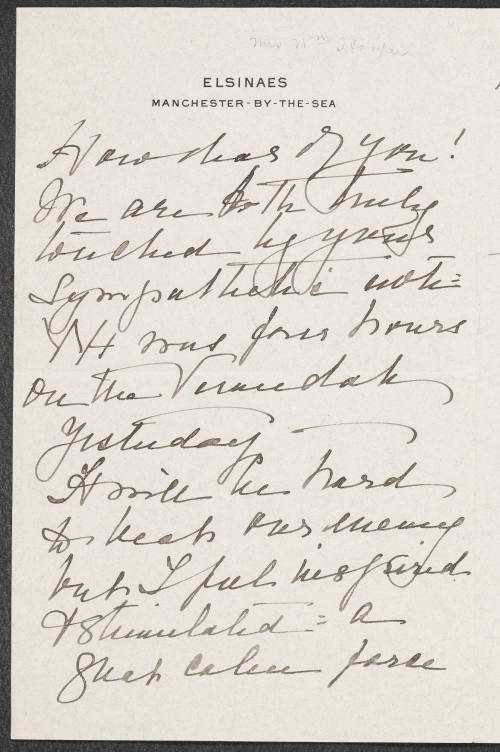 Mrs Wm J Hooper
ELSINAES
MANCHESTER-BY-THE-SEA
How dear of you!
We are both truly
touched by your
sympathetic note =
W was four hours
on the Verandah
yesterday —
It will be hard
to beat our enemy
but I feel inspired
& stimulated = a
great calm force